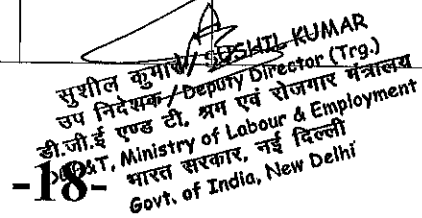 सुशील कुमार/ SUSHIL KUMAR
उप निदेशक/Deputy Director (Trg.)
डी.जी.ई एण्ड टी, श्रम एवं रोजगार मंत्रालय
Ministry of Labour & Employment
भारत सरकार, नई दिल्ली
Govt. of India, New Delhi
-18-